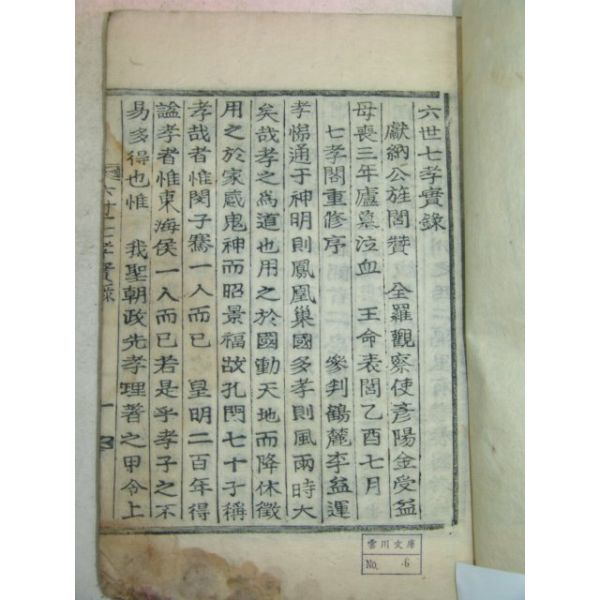 六世七孝實錄
獻納公旌閭贊 全羅觀察使彥陽金受益
母喪三年廬墓泣血 王命表閭乙酉七月
七孝閣重修序 參判鶴麓李益運
孝悌通于神明則鳳凰巢國多孝則風雨時大
矣哉孝之爲道也用之於國動天地而降休徵
用之於家感鬼神而昭景福故孔門七十子稱
孝哉者惟閔子騫一人而已 皇明二百年得
謚孝者惟東海侯一人而已若是乎孝子之不
易多得也惟 我聖朝政先孝理著之甲令上
六世七孝實錄
一
雲川文庫
No. 6